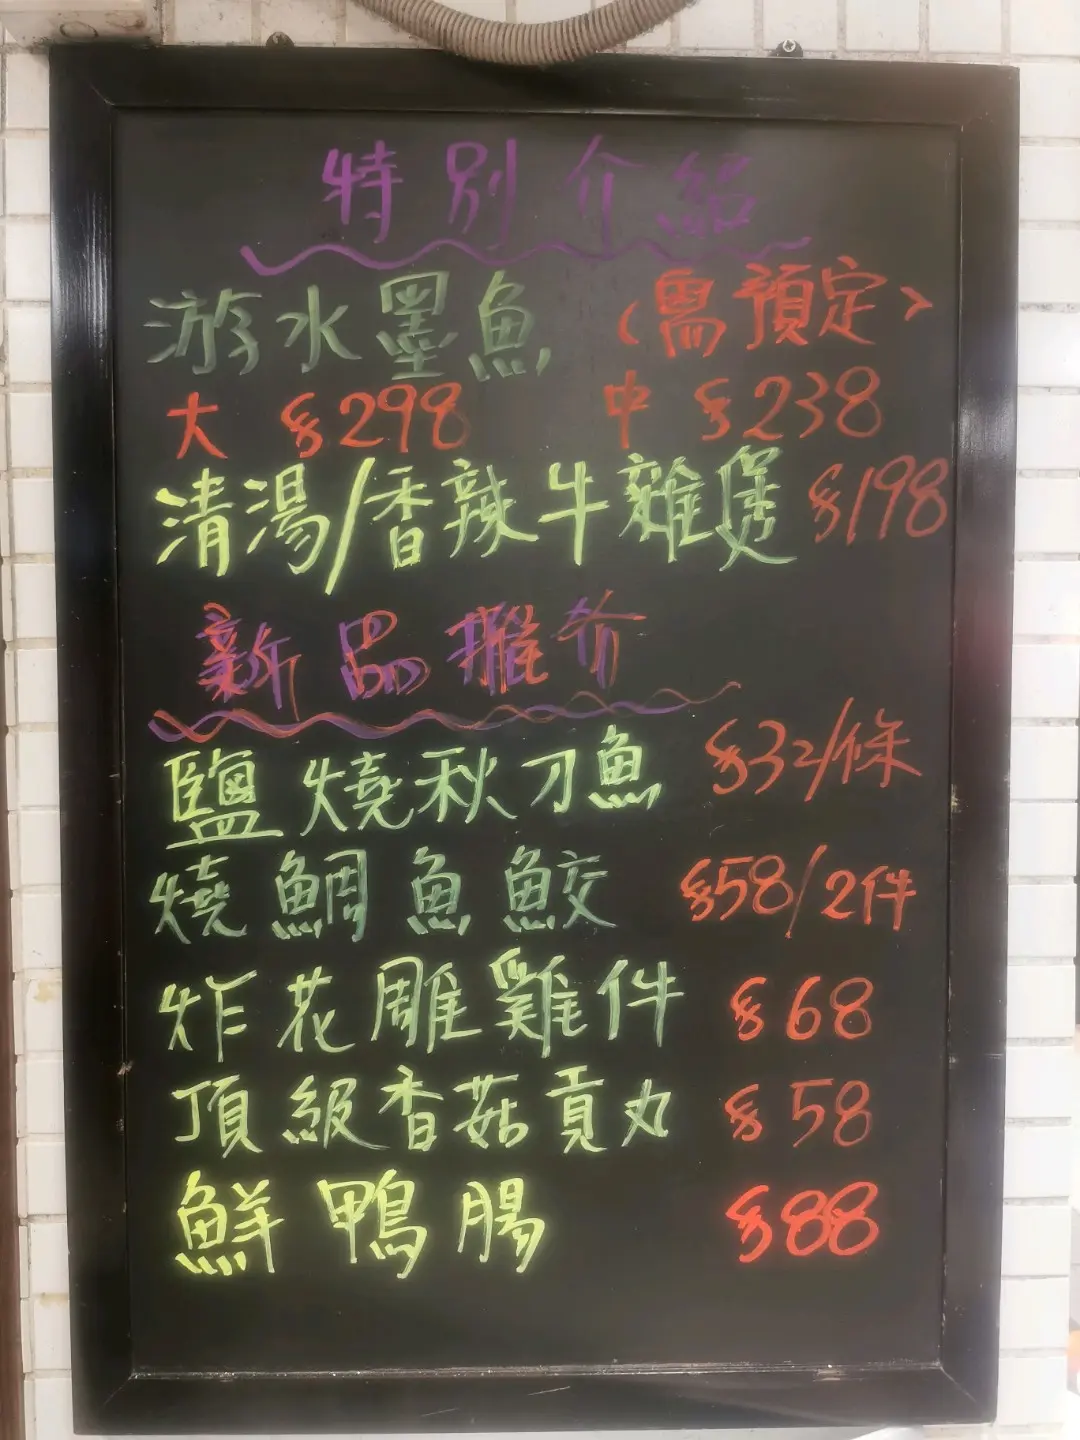 特別介紹
游水墨魚 (需預定)
大 $298 中 $238
清湯/香辣牛雜煲 $198
新品推介
鹽燒秋刀魚 $32/條
燒鯛魚鮫 $58/2件
炸花雕雞件 $68
頂級香菇貢丸 $58
鮮鴨腸 $88